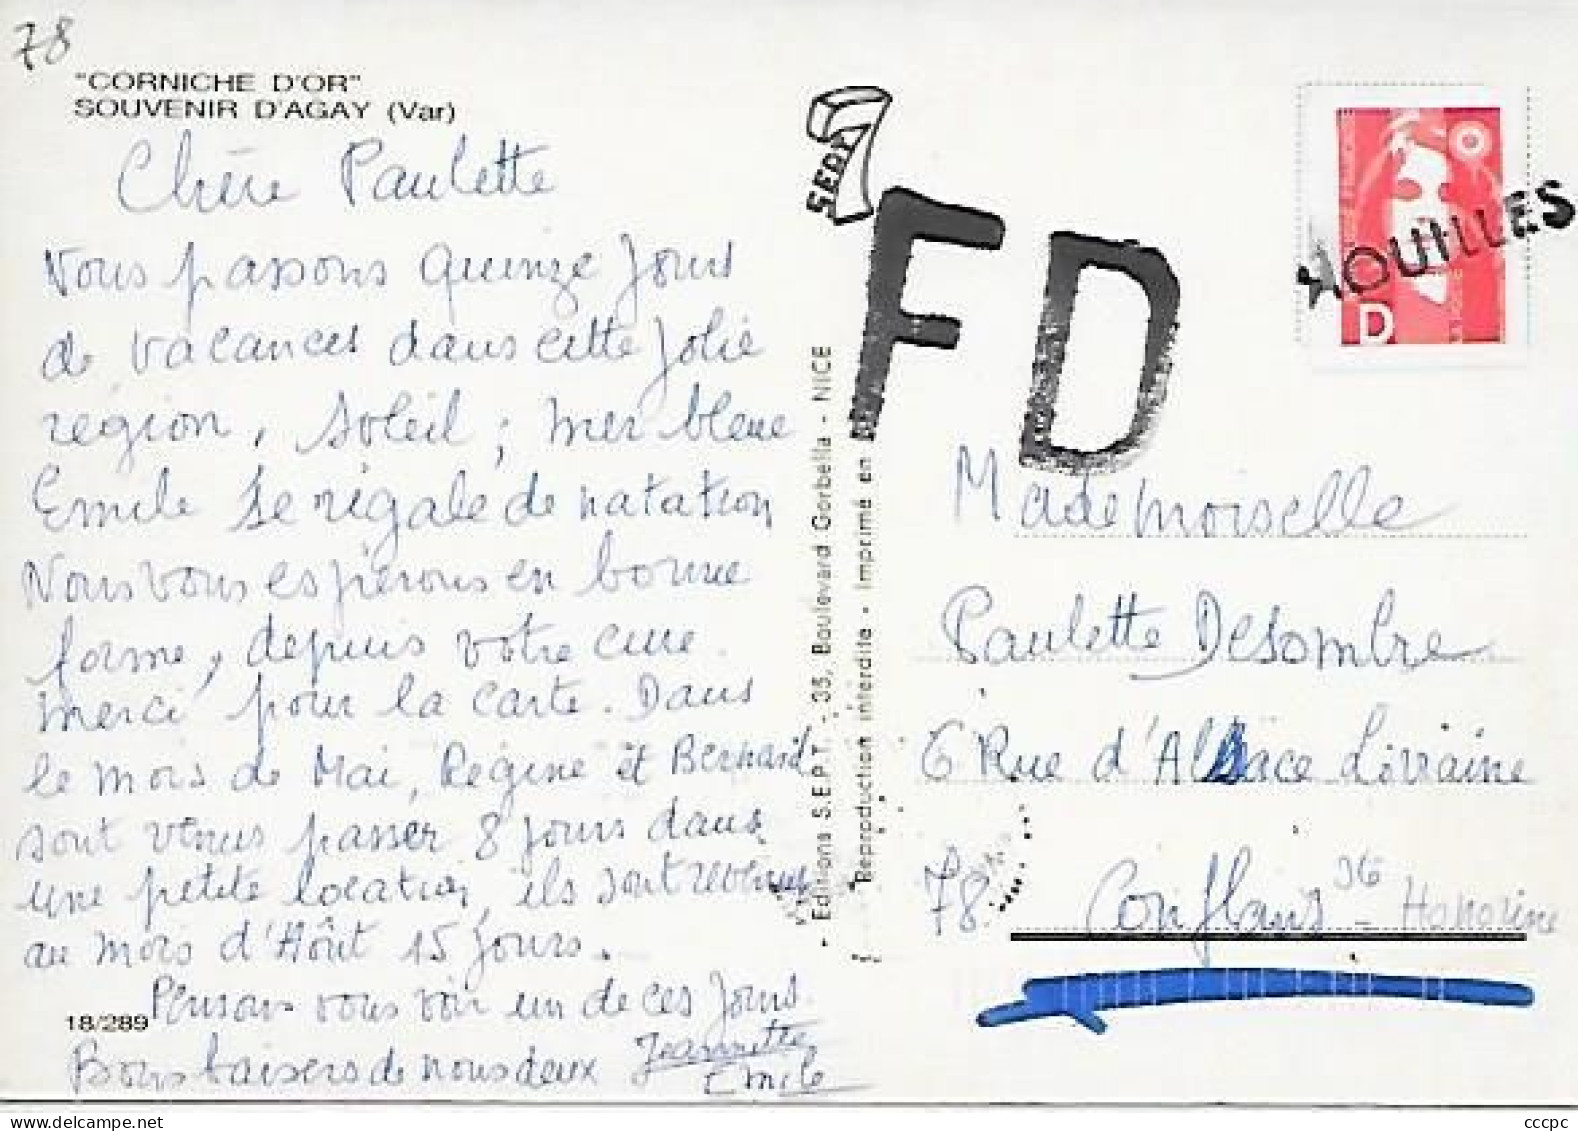 78
"CORNICHE D'OR"
SOUVENIR D'AGAY (Var)
Chère Paulette
Nous passons quinze jours
de vacances dans cette jolie
région, soleil, mer bleue
Emile se régale de natation
Nous vous espérons en bonne
forme, depuis votre cure.
Merci pour la carte. Dans
le mois de Mai, Régine et Bernard
sont venus passer 8 jours dans
une petite location, ils sont revenus
au mois d'Août 15 jours.
Pensons vous voir un de ces jours.
18/289
Bons baisers de nous deux Jeannette
Emile
- Editions S.E.P.T. - 35, Boulevard Gorbella - NICE
Reproduction interdite - Imprimé en
SEPT
FD
D
MOUILLES
Mademoiselle
Paulette Desombre
6 Rue d'Alsace Lorraine
78 Conflans - Honorine
cccpc